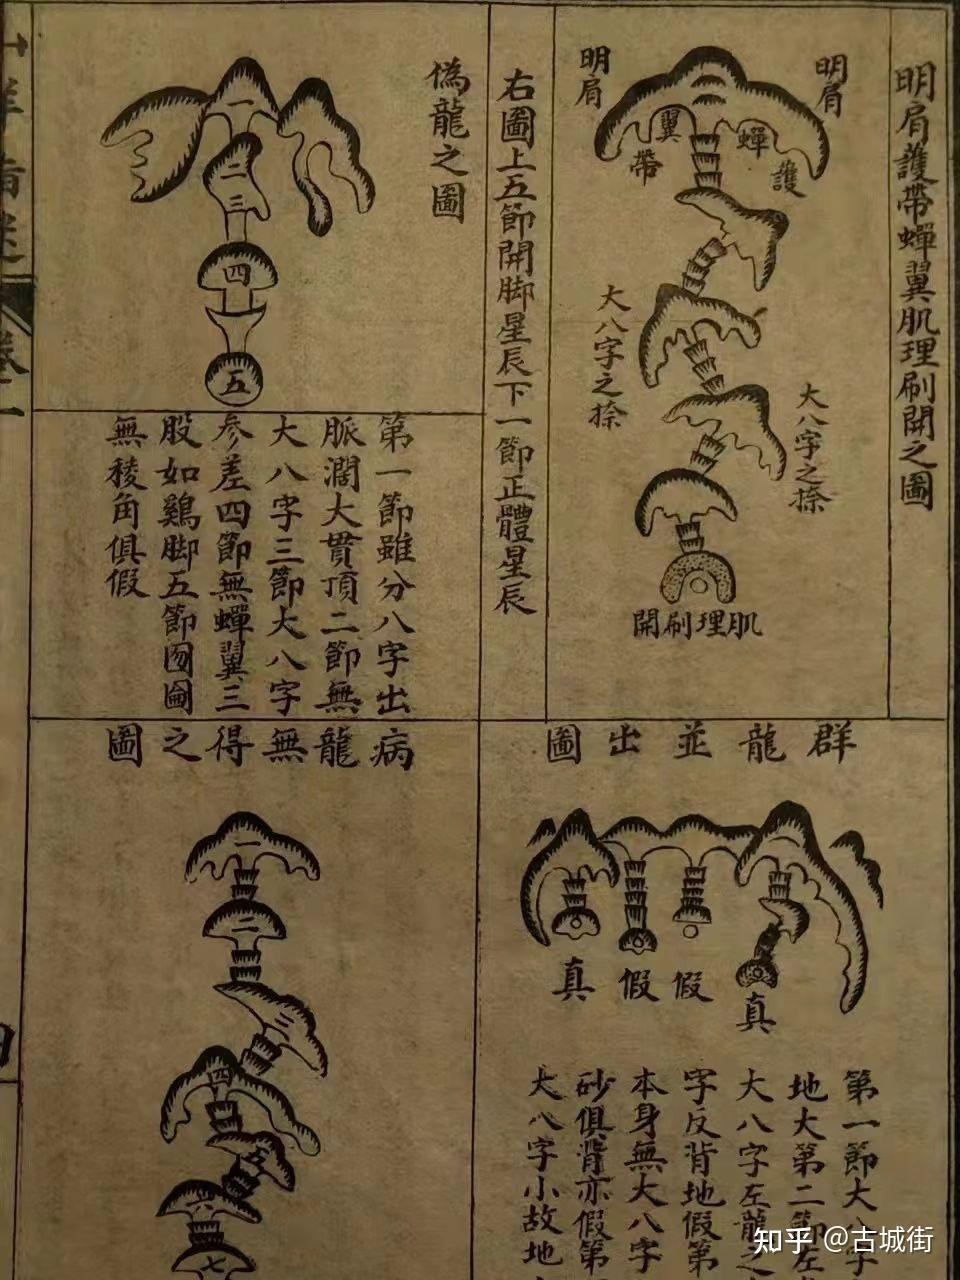 明肩護帶蟬翼肌理刷開之圖
明肩
明肩
蟬
護
翼
帶
大八字之捺
大八字之捺
開刷理肌
右圖上五節開脚星辰下一節正體星辰
偽龍之圖
一
二
三
四
五
第一節雖分八字出
脈濶大貫頂二節無
大八字三節大八字
參差四節無蟬翼三
股如鷄脚五節囫圇
無稜角俱假
圖出並龍群
真
假
假
真
第一節大八字
地大第二節左
大八字左龍之
字反背地假第
本身無大八字
砂俱背亦假第
大八字小故地
圖之得無龍病
一
二
三
四
六
七
卷一
知乎 @古城街